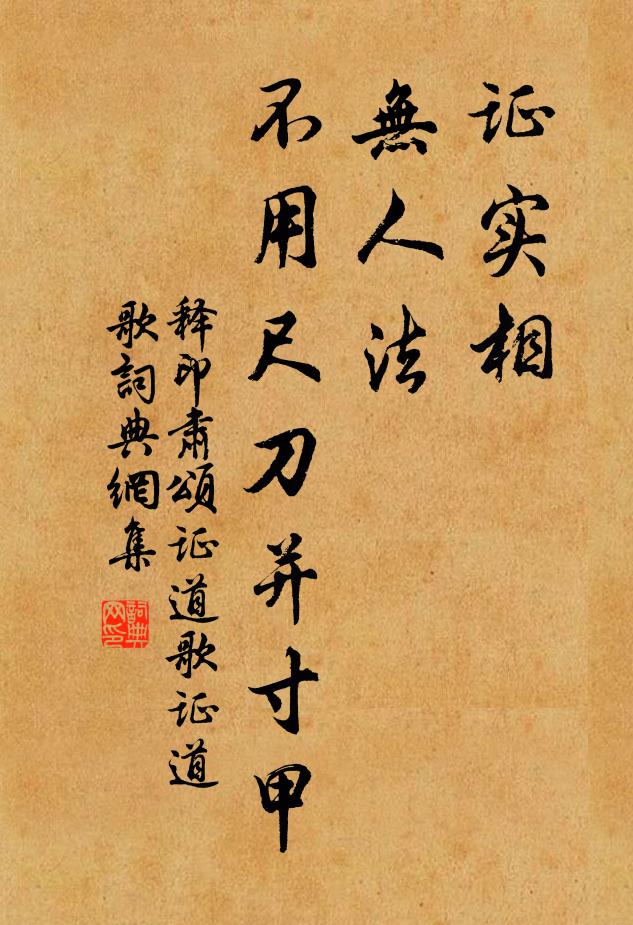 证实相
無人法
不用尺刀并寸甲
释印肃颂证道歌证道
歌詞典網集
詞典
网印